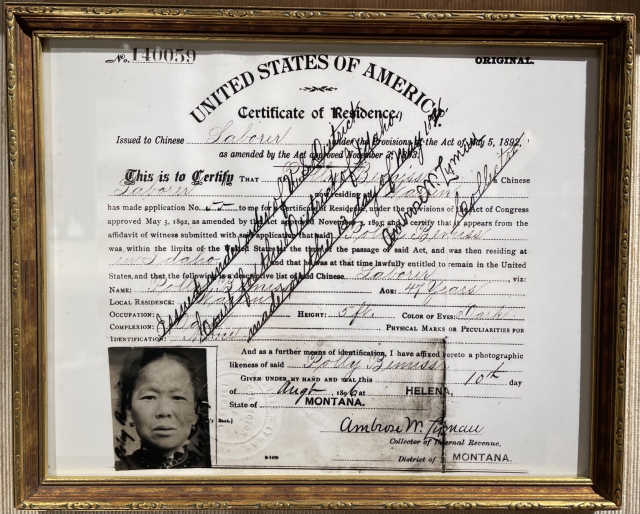 No. 140059
ORIGINAL.
UNITED STATES OF AMERICA.
Certificate of Residence.
Issued to Chinese Laborer under the Provisions of the Act of May 5, 1892,
as amended by the Act approved November 3, 1893.
This is to Certify THAT Polly Bemiss a Chinese
Laborer now residing
has made application No. 55 to me for a Certificate of Residence, under the provisions of the Act of Congress
approved May 5, 1892, as amended by the Act approved November 3, 1893, and I certify that it appears from the
affidavit of witness submitted with said application that said Polly Bemiss
was within the limits of the United States at the time of the passage of said Act, and was then residing at
in Idaho and that he was at that time lawfully entitled to remain in the United
States, and that the following is a descriptive list of said Chinese Laborer viz:
NAME: Polly Bemiss AGE: 47 Years
LOCAL RESIDENCE:
OCCUPATION: HEIGHT: 5 ft. COLOR OF EYES: Dark
COMPLEXION: PHYSICAL MARKS OR PECULIARITIES FOR
IDENTIFICATION:
Issued under order of U.S. District
Court for the District of Idaho
made on this 13 day of May 1896
Ambrose W. Turnau
Collector
And as a further means of identification, I have affixed hereto a photographic
likeness of said Polly Bemiss
GIVEN UNDER MY HAND AND SEAL this 10th day
of Augt 1896 at HELENA,
State of MONTANA.
Ambrose W. Turnau
Collector of Internal Revenue,
District of MONTANA.